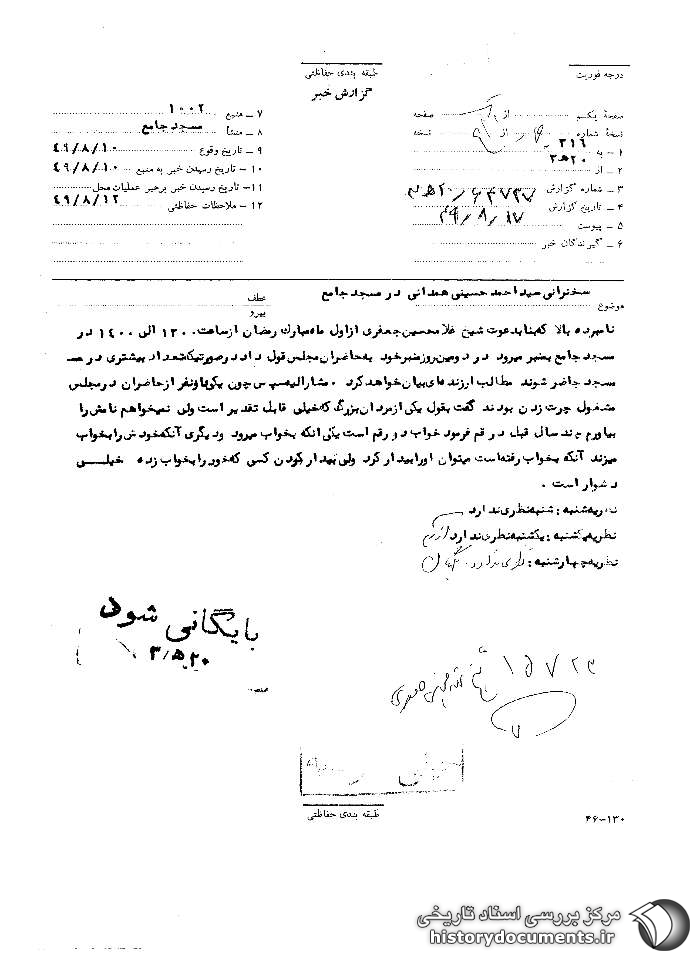 درجه فوریت
طبقه بندی حفاظتی
گزارش خبر
صفحهٔ یکم از صفحه
نسخهٔ شماره از نسخه
۱ ـ به ۳۱۶
۲ ـ از ۲۰ ه‍ ۳
۳ ـ شماره گزارش
۴ ـ تاریخ گزارش ۴۹/۸/۱۷
۵ ـ پیوست
۶ ـ گیرندگان خبر
۷ ـ منبع ۱۰۰۲
۸ ـ منشأ مسجد جامع
۹ ـ تاریخ وقوع ۴۹/۸/۱۰
۱۰ ـ تاریخ رسیدن خبر به منبع ۴۹/۸/۱۰
۱۱ ـ تاریخ رسیدن خبر برهبر عملیات محل
۱۲ ـ ملاحظات حفاظتی ۴۹/۸/۱۲
موضوع سخنرانی سید احمد حسینی همدانی در مسجد جامع
عطف
پیرو
نامبرده بالا که بنابدعوت شیخ غلامحسین جعفری ازاول ماه مبارک رمضان ازساعت ۱۳۰۰ الی ۱۴۰۰ در
مسجد جامع بمنبر میرود در دومین روز منبر خود به حاضران مجلس قول داد در صورتیکه تعداد بیشتری در
مسجد حاضر شوند مطالب ارزنده‌ای بیان خواهد کرد . مشارالیه سپس چون یکی یا دو نفر از حاضران در مجلس
مشغول چرت زدن بودند گفت بقول یکی از مردان بزرگ که خیلی قابل تقدیر است ولی نمیخواهم نامش را
بیاورم چند سال قبل در قم فرمود خواب دو رقم است یکی آنکه بخواب میرود و دیگری آنکه خودش را بخواب
میزند آنکه بخواب رفته است میتوان او را بیدار کرد ولی بیدار کردن کسی که خود را بخواب زده خیلی
دشوار است .
نظریه شنبه : شنبه نظری ندارد
نظریه یکشنبه : یکشنبه نظری ندارد
نظریه چهارشنبه : نظری ندارد .
بایگانی شود
۲۰ ه‍ ۳
۱۵۷۲۳
طبقه بندی حفاظتی
۴۶-۱۳۰
مرکز بررسی اسناد تاریخی
historydocuments.ir